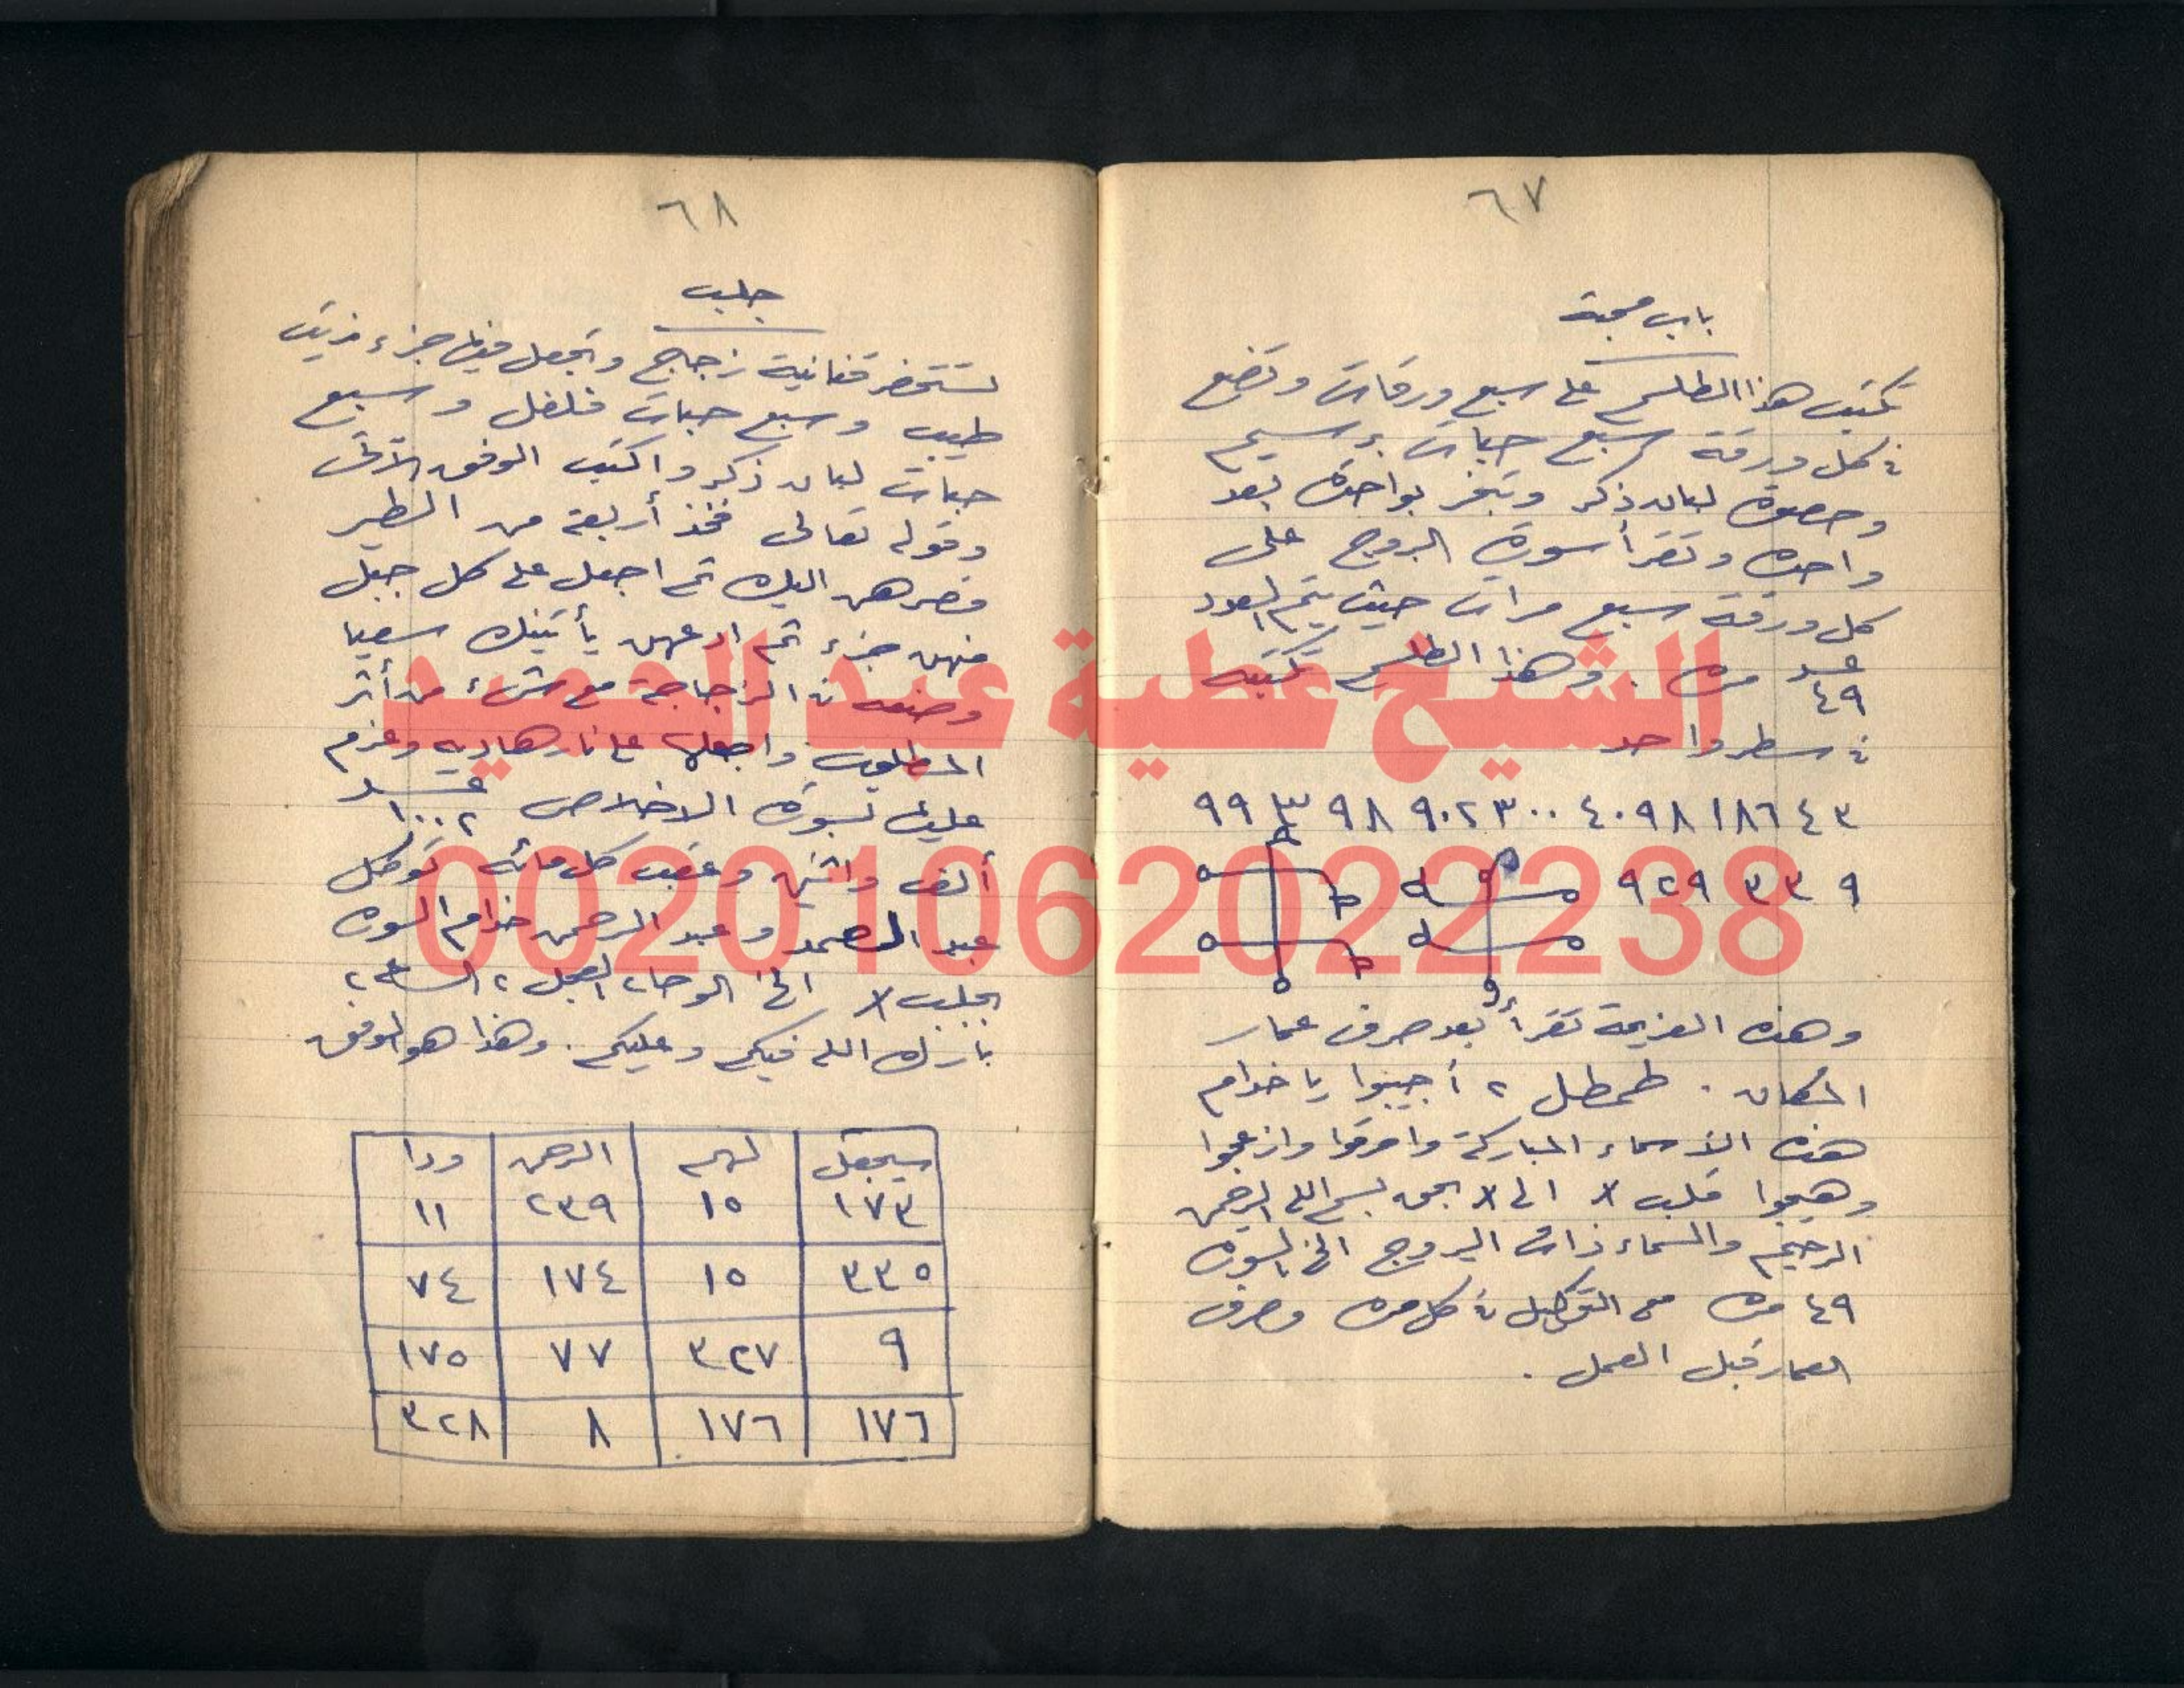 ٦٧
باب محبة
تكتب هذا الطلسم على سبع ورقات وتضع
فى كل ورقة سبع حبات
وحصوة لبان ذكر وتبخر بواحدة بعد
واحدة وتقرأ سورة البروج على
كل ورقة سبع مرات حيث يتم العدد
عـــدد ٤٩ مرة . وهذا الطلسم تكتبه
فى سطر واحد
٩٩ ٣ ٩٨ ٩٠٢٣٠٠ ٤٠٩٨ ١٨٦٤٣
٩ ٣٣ ٩٢٩
وهذه العزيمة تقرأ بعد صرف عمار
المكان . طمطل ٢ أجيبوا يا خدام
هذه الأسماء المباركة واحرقوا وازعجوا
وهيجوا قلب x الى x بحق بسم الله الرحمن
الرحيم والسماء ذات البروج الخ السورة
٤٩ مرة مع التوكيل فى كل مرة وصرف
العمار قبل العمل .
٦٨
جلب
تستحضر قنانية زجاج وتجعل فيها جزء زيت
طيب وسبع حبات فلفل وسبع
حبات لبان ذكر واكتب الوفق الآتى
وقوله تعالى فخذ أربعة من الطير
فصرهن اليك ثم اجعل على كل جبل
منهن جزء ثم ادعهن يأتينك سعيا
وضعه فى الزجاجة مع شىء من أثر
المطلوب واجعلها على نار هادية وعزم
عليها بسورة الاخلاص عـــدد ١٠٠٢
ألف واثنين وعقب كل مائه توكل
عبد الصمد وعبد الرحمن خدام السورة
بجلب x الخ الوحا ٢ العجل ٢ الساعة ٢
بارك الله فيكم وعليكم . وهذا هو الوفق
سيجعل لهم الرحمن ودا
١٧٣ ١٥ ٢٣٩ ١١
٣٣٥ ١٥ ١٧٤ ٧٤
٩ ٣٢٧ ٧٧ ١٧٥
١٧٦ ١٧٦ ٨ ٣٢٨
الشيخ عطية عبد الحميد
00201062022238